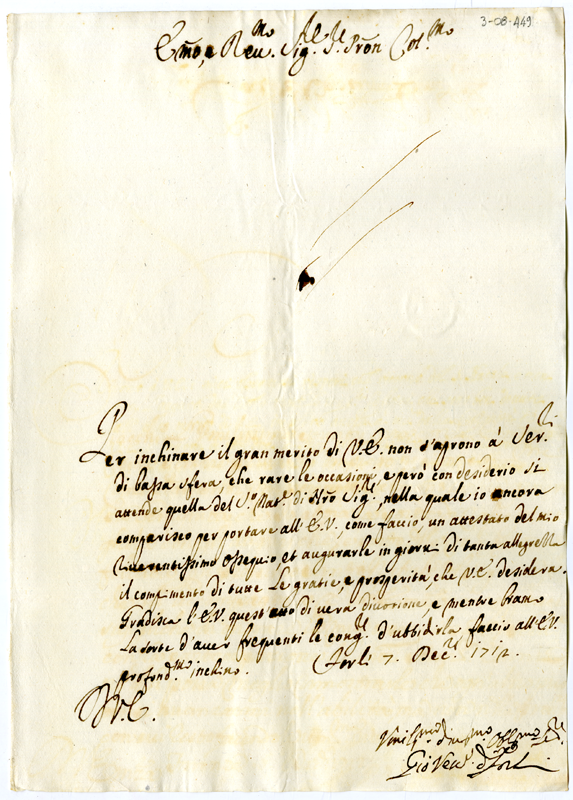 3-08-449
Emo, e Reu.mo Sig.r P.ron Col.mo
Per inchinare il gran merito di V.E. non s'aprono à Ser.ri
di bassa sfera, che rare le occasioni, e però con desiderio si
attende quella del S.o Nat.e di Nro Sig.re, nella quale io ancora
comparisco per portare all'E.V., come faccio, un attestato del mio
riuerentissimo ossequio, et augurarle in giorni di tanta allegrezza
il compimento di tutte le gratie, e prosperità, che V.E. desidera.
Gradisca l'E.V. quest'atto di uera diuozione, e mentre bramo
la sorte d'auer frequenti le cong.re d'ubbidirla faccio all'E.V.
profond.mo inchino. Forlì 7. Dec.e 171
D V.E.
Gio